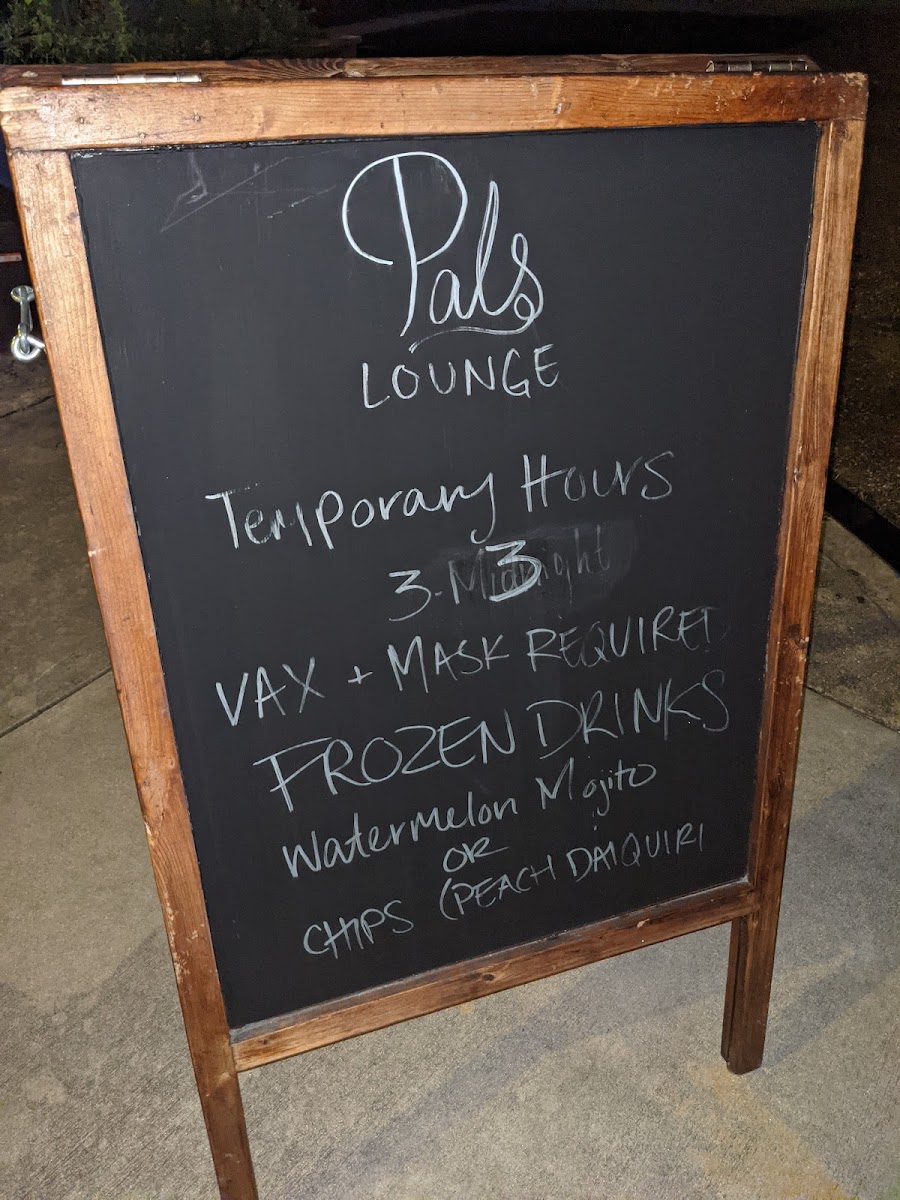 Pals
LOUNGE
Temporary Hours
3-Midnight 3
VAX + MASK REQUIRED
FROZEN DRINKS
Watermelon Mojito
OR
CHIPS (PEACH DAIQUIRI